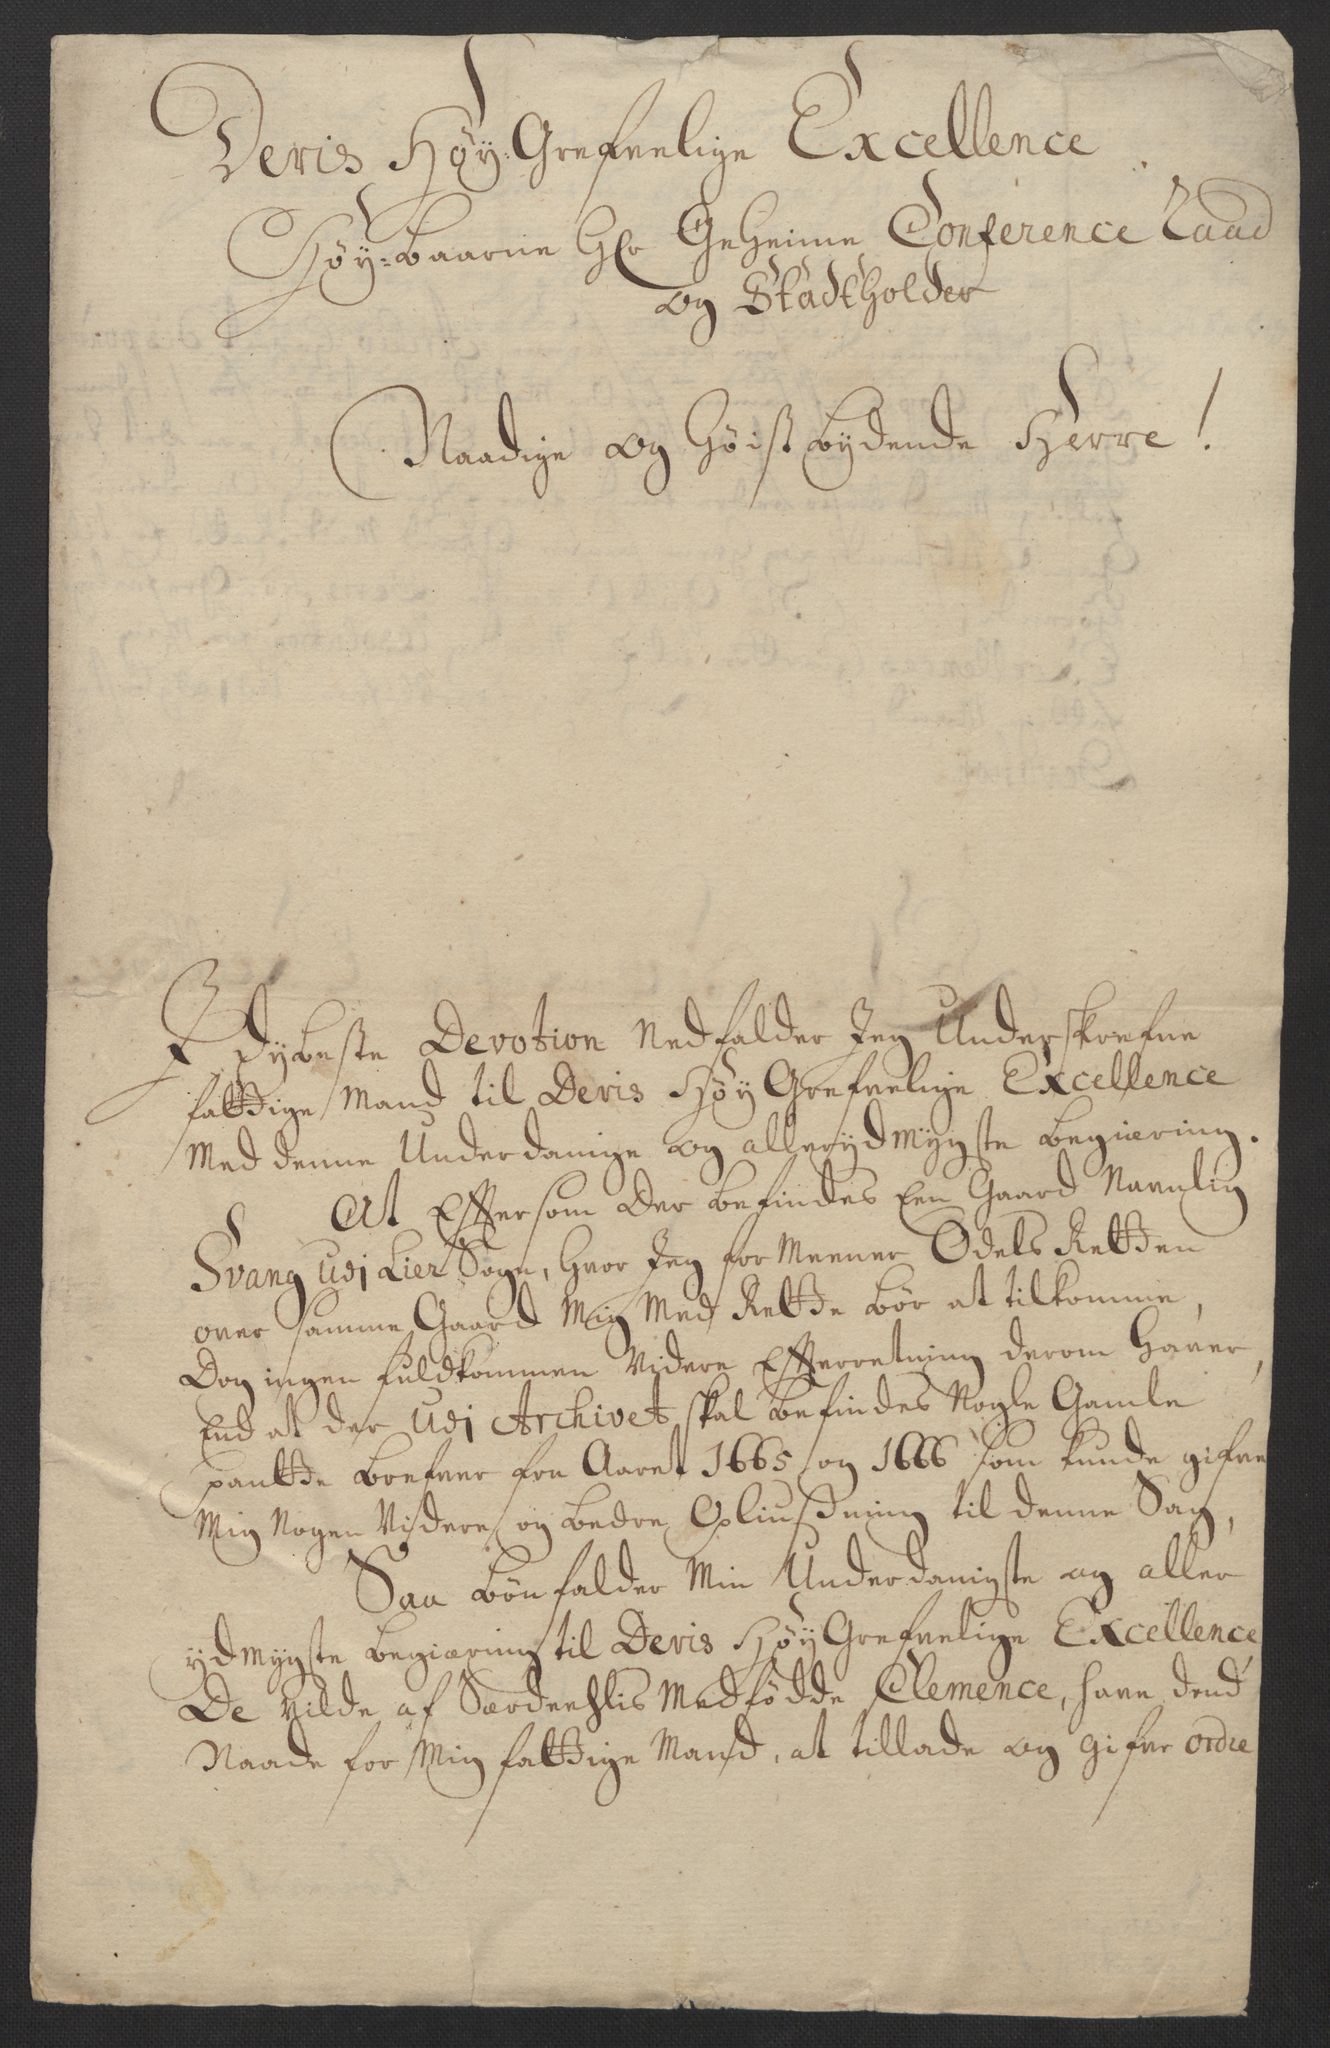 Deris Høy-Grefvelige Excellence
Høy-baarne Hr GeHeime Conference Raad
og Stadtholder
Naadige og Høist bydende Herre!
I dybeste Devotion Nedfalder Jeg Underskrefne
fattige Mand til Deris Høy Grefvelige Excellence
Med denne Underdanige og allerydmygste begiæring.
At Effersom der befindes Een Gaard Navnlig
Svang Udj Lier Sogn, hvor Jeg formeener Odels Retten
over samme Gaard Mig Med Rette bør at tilkomme,
Dog ingen fuldkommen Videre Efferretning derom haver,
End at der Udj Archivet skal befindes Nogle Gamle
pantte brefver fra Aaret 1665 og 1666 som kunde gifve
Mig Nogen Videre og bedre Opliusning til denne Sag,
Saa bønfalder Min Underdanigste og aller
ydmygste begiæring til Deris Høy Grefvelige Excellence
De Vilde af Særdeehlis Medfødde Clemence, have dend
Naade for Mig fattige Mand, at tillade og gifve ordre